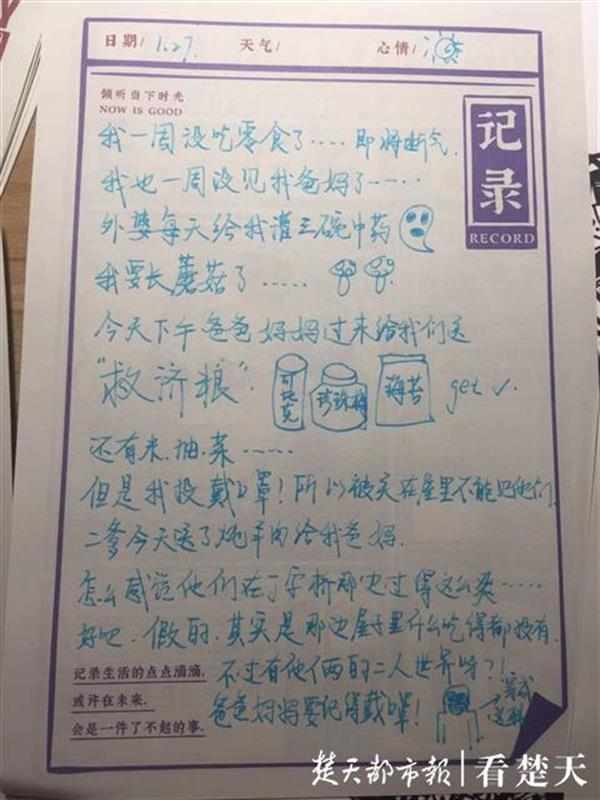 日期/ 1.27. 天气/ 心情/
倾听当下时光
NOW IS GOOD
记录
RECORD
我一周没吃零食了.... 即将断气.
我也一周没见我爸妈了.....
外婆每天给我灌三碗中药
我要长蘑菇了.....
今天下午爸爸妈妈过来给我们送
"救济粮". 可比克 珍珠梅 海苔 get ✓.
还有米.油.菜.....
但是我没戴口罩!所以被关在屋里不能见他们.
二爹今天送了炖羊肉给我爸妈.
怎么感觉他们在丁字桥那边过得这么爽.....
好吧.假的.其实是那边屋子里什么吃得都没有.
不过有他们俩的二人世界呀?!
爸爸妈妈要记得戴罩!
穿成这样
记录生活的点点滴滴,
或许在未来,
会是一件了不起的事.
楚天都市报 看楚天